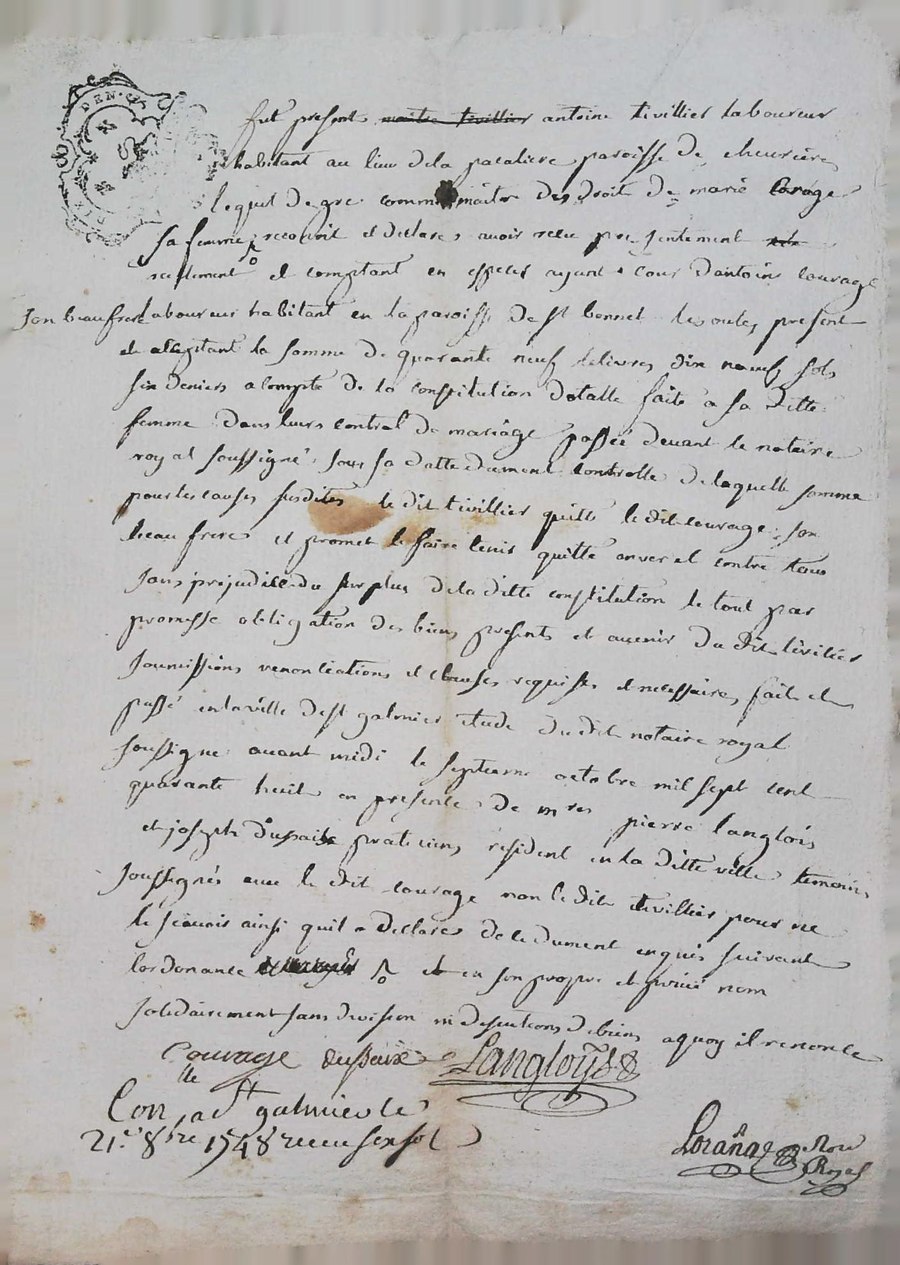 DEN
fut present maitre tivillier antoine tivillier laboureur
habitant au lieu dela pacaliere paroisse de cheuriere
lequel de gre comme maitre des droit de marie Corage
sa femme recouvit et declare avoir recu presentement
reellement et comptant en especes ayant cour dantoine couragé
son beau frere laboureur habitant en la paroisse de st bonnet les oules present
et acceptant la somme de quarante neuf livres dix neuf sols
six deniers acompte de la constitution dotalle faite a sa ditte
femme dans leurs contrat de mariage passée devant le notaire
royal soussigné sous sa datte dument controlle de laquelle somme
pour les causes susdites le dit tivillier quitte le dit courage son
beau frere et promet le faire tenir quitte enver et contre tous
sans prejudice du surplus dela ditte constitution le tout par
promesse obligation des biens presents et avenir du dit tivilier
soumissions renontiations et clauses requises et necessaires fait et
passé en la ville de st galmier etude du dit notaire royal
soussigne avant midi le septieme octobre mil sept cent
quarante huit en presence de mres pierre langlois
et joseph dussaix praticiens resident en la ditte ville temoins
soussignés avec le dit courage non le dit tivillier pour ne
le scavoir ainsi quil a declare de ce dument enquis suivant
lordonance et en son propre et privé nom
solidairement sans division ni discutions de biens a quoy il renonce
Courage dussaix Langloys
Conlle a st galmier le
21e 8bre 1748 recu six sols
Lorange Nore
Royal